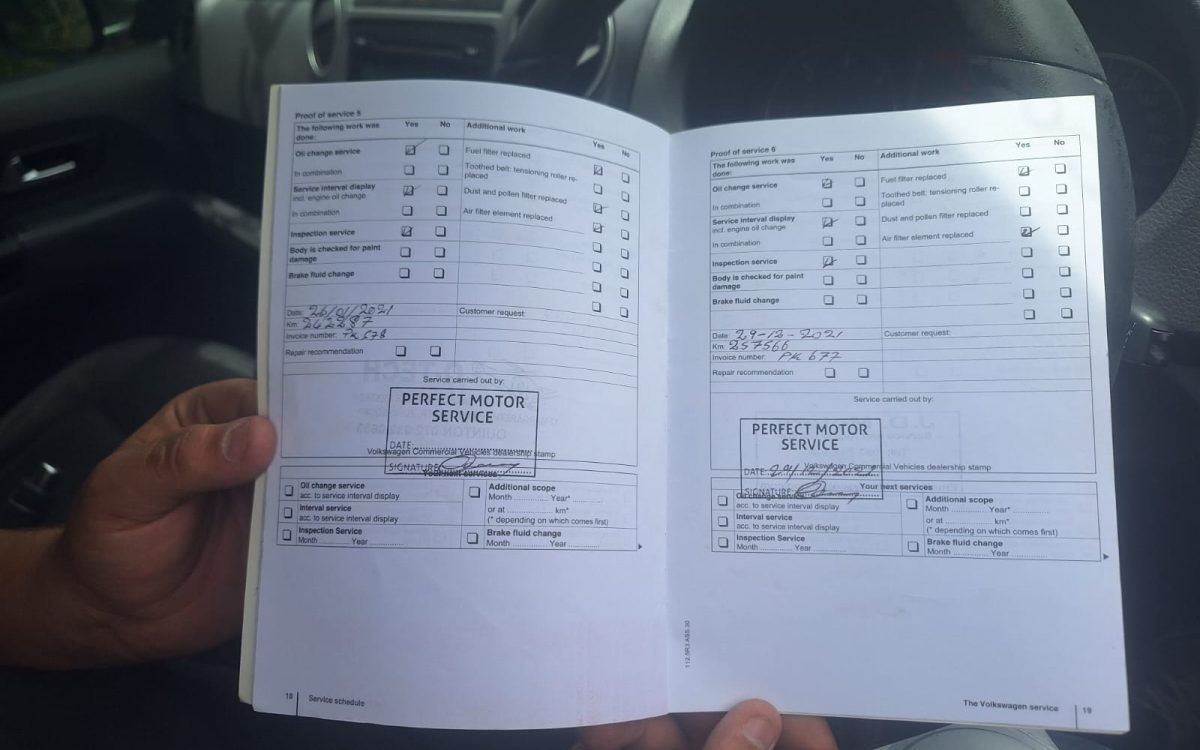 Proof of service 5
The following work was done:
Yes No Additional work Yes No
Oil change service
Fuel filter replaced
In combination
Toothed belt; tensioning roller re-
placed
Service interval display
incl. engine oil change
Dust and pollen filter replaced
In combination
Air filter element replaced
Inspection service
Body is checked for paint
damage
Brake fluid change
Date: 26/01/2021
Customer request:
Km: 242287
Invoice number: PK 578
Repair recommendation
Service carried out by:
PERFECT MOTOR
SERVICE
DATE:
Volkswagen Commercial Vehicles dealership stamp
SIGNATURE
Your next services
Oil change service
acc. to service interval display
Interval service
acc. to service interval display
Inspection Service
Month Year
Additional scope
Month Year*
or at km*
(* depending on which comes first)
Brake fluid change
Month Year
18 Service schedule
Proof of service 6
The following work was
done:
Yes No Additional work Yes No
Oil change service
Fuel filter replaced
In combination
Toothed belt; tensioning roller re-
placed
Service interval display
incl. engine oil change
Dust and pollen filter replaced
In combination
Air filter element replaced
Inspection service
Body is checked for paint
damage
Brake fluid change
Date: 29-12-2021
Customer request:
Km: 257566
Invoice number: PK 677
Repair recommendation
Service carried out by:
PERFECT MOTOR
SERVICE
Volkswagen Commercial Vehicles dealership stamp
DATE:
SIGNATURE
Your next services
Oil change service
acc. to service interval display
Interval service
acc. to service interval display
Inspection Service
Month Year
Additional scope
Month Year*
or at km*
(* depending on which comes first)
Brake fluid change
Month Year
112.5R3.ASS.30
The Volkswagen service 19